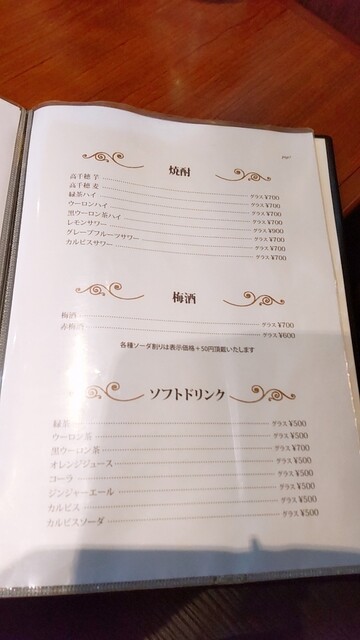 焼酎
高千穂 芋 グラス ¥700
高千穂 麦 グラス ¥700
緑茶ハイ グラス ¥700
ウーロンハイ グラス ¥700
黒ウーロン茶ハイ グラス ¥900
レモンサワー グラス ¥700
グレープフルーツサワー グラス ¥700
カルピスサワー グラス ¥700
梅酒
梅酒 グラス ¥700
赤梅酒 グラス ¥600
各種ソーダ割りは表示価格+50円頂戴いたします
ソフトドリンク
緑茶 グラス ¥500
ウーロン茶 グラス ¥500
黒ウーロン茶 グラス ¥700
オレンジジュース グラス ¥500
コーラ グラス ¥500
ジンジャーエール グラス ¥500
カルピス グラス ¥500
カルピスソーダ グラス ¥500